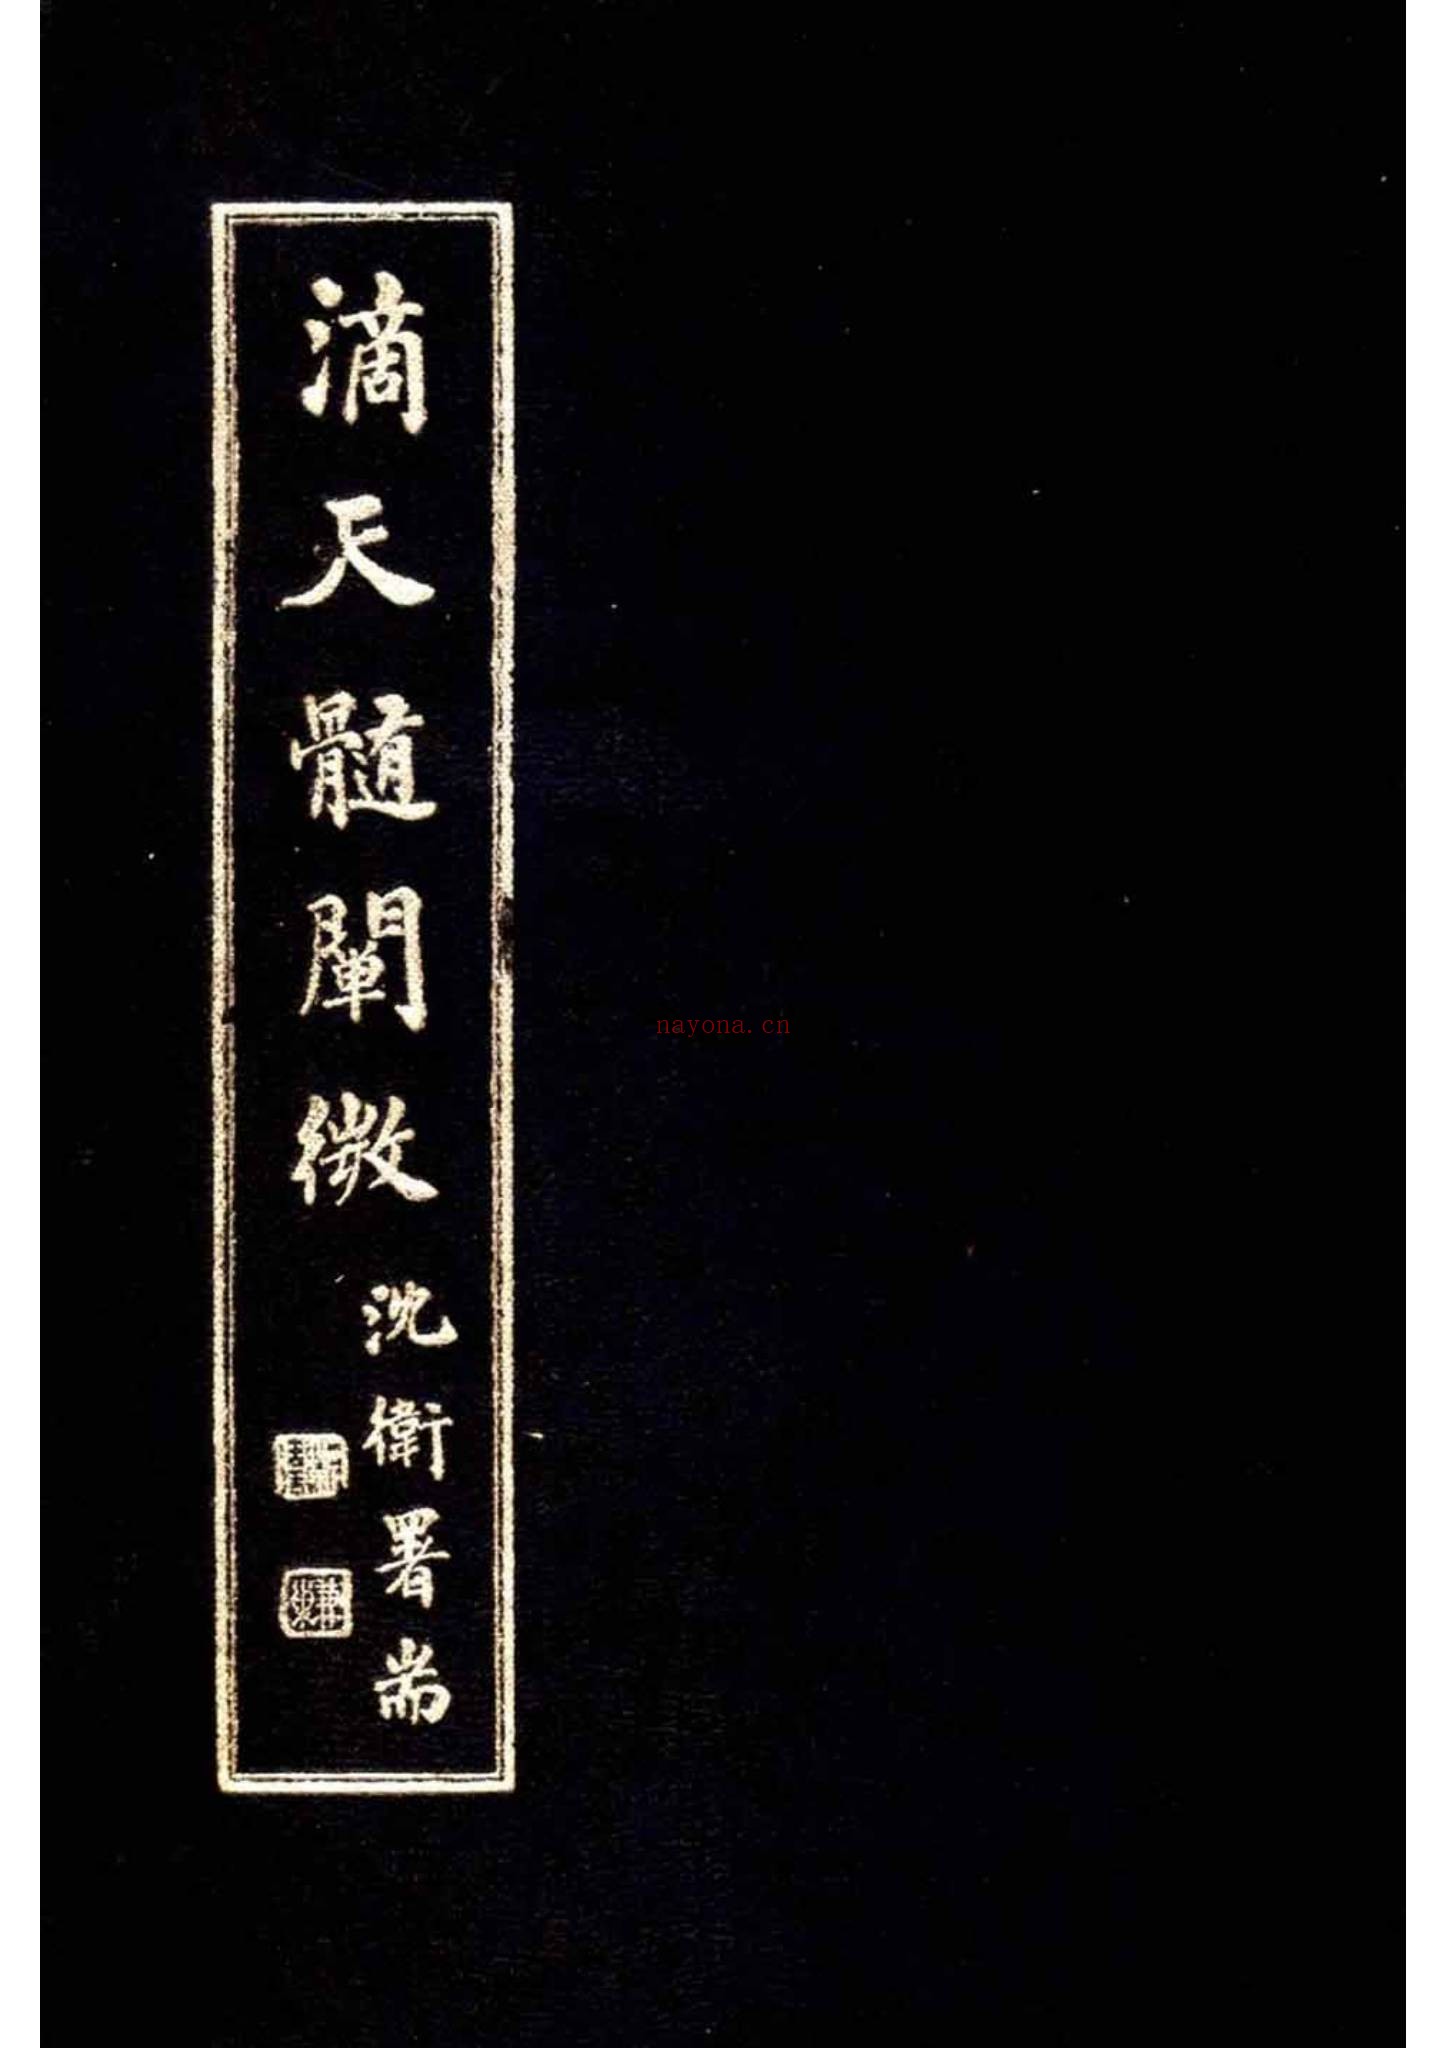 滴天髓闡微
沈衛署耑
nayona.cn